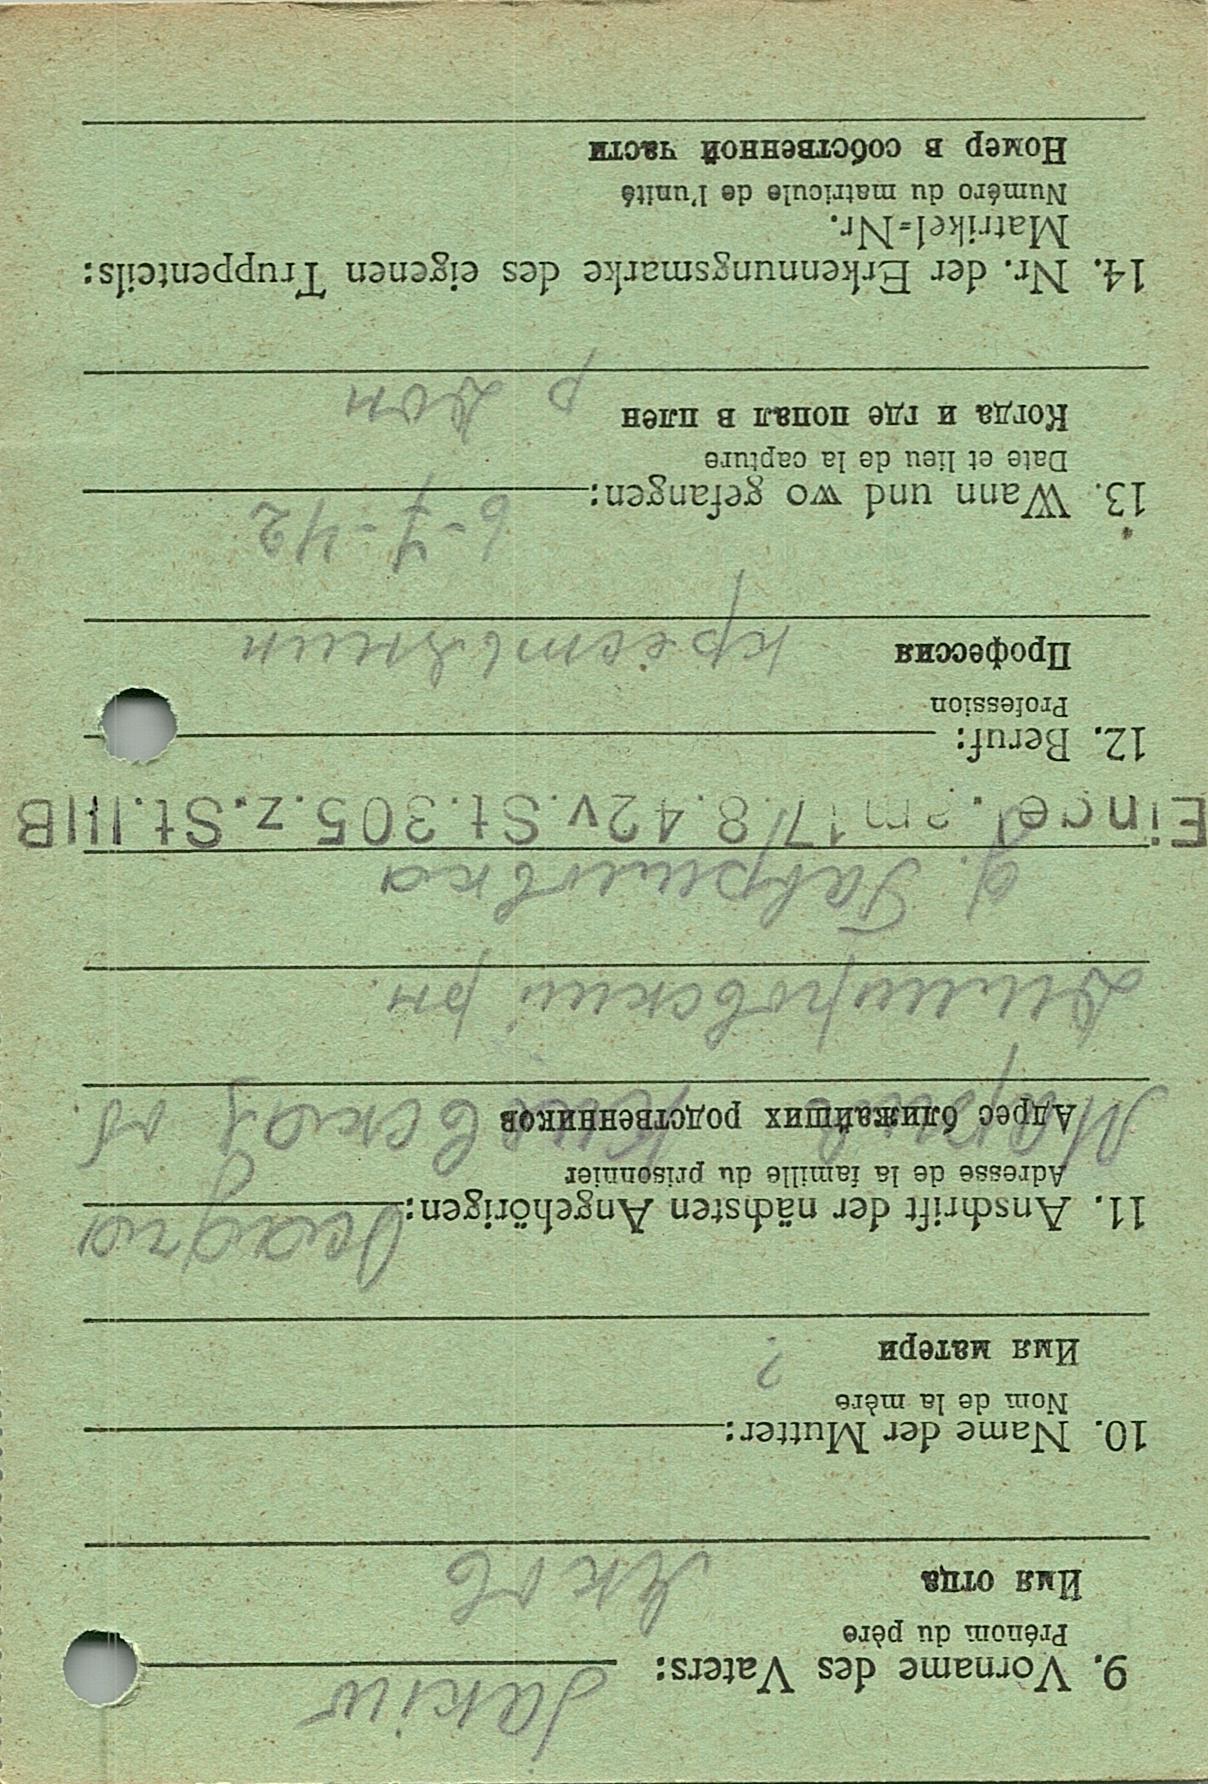 9. Vorname des Vaters: Jakiw
Prénom du père
Имя отца Яков
10. Name der Mutter:
Nom de la mère
Имя матери ?
11. Anschrift der nächsten Angehörigen:
Adresse de la famille du prisonnier
Адрес ближайших родственников
Киевская об
Димировский рн.
д. Гавриловка
Eingel. am 17.8.42 v. St. 305. z. St. IIIB
12. Beruf:
Profession
Профессия крестьянин
13. Wann und wo gefangen: 6-7-42
Date et lieu de la capture
Когда и где попал в плен
р Дон
14. Nr. der Erkennungsmarke des eigenen Truppenteils:
Matrikel-Nr.
Numéro du matricule de l'unité
Номер в собственной части